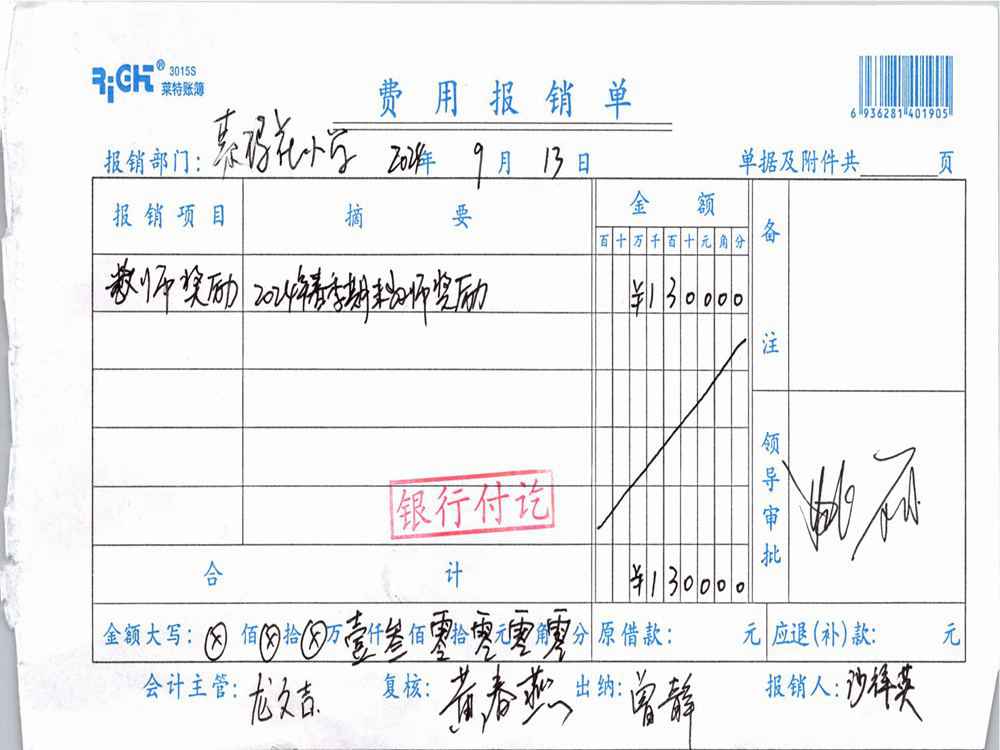 RiGHT® 3015S
莱特账簿
费用报销单
6 936281 401905
报销部门: 慕得花小学 2024年 9月 13日 单据及附件共 页
报销项目 摘要 金额 备注
百十万千百十元角分
教师奖励 2024年春季期末教师奖励 ¥130000
银行付讫
领导审批
合计 ¥130000
金额大写: ⊗佰⊗拾⊗万壹仟叁佰零拾零元零角零分 原借款: 元 应退(补)款: 元
会计主管: 龙文吉 复核: 黄春燕 出纳: 曾静 报销人: 沙祥英